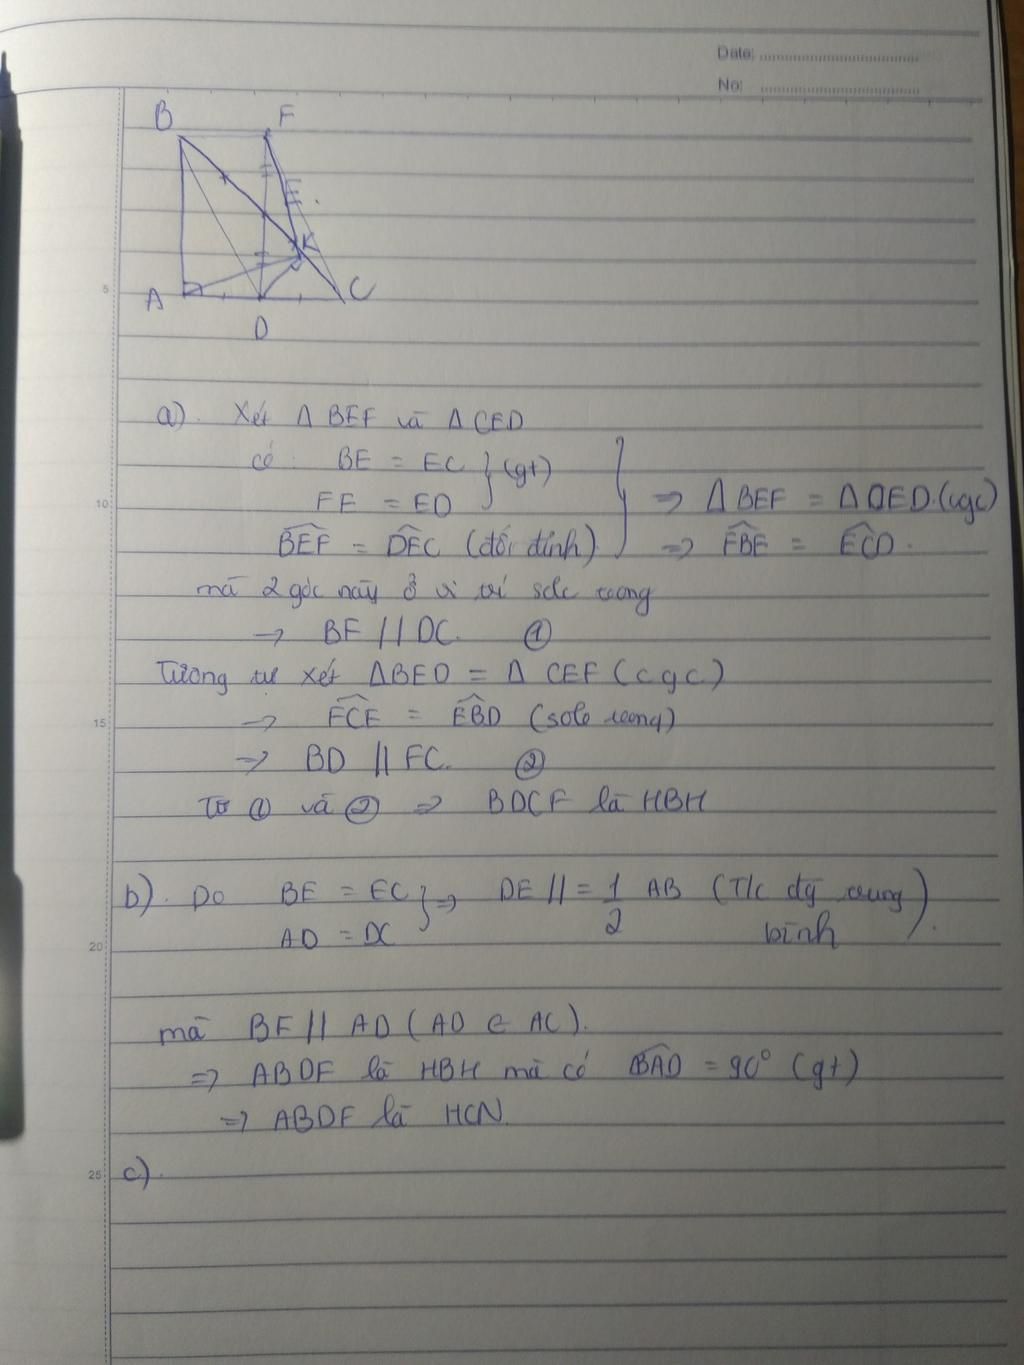 Date:
No:
B F
K
A C
D
5
a). Xét Δ BEF và Δ CED
có: BE = EC } (gt)
10 FE = ED ⇒ Δ BEF = Δ CED (cgc)
BEF = DEC (đối đỉnh) ⇒ FBE = ECD.
mà 2 góc này ở vị trí sole trong
→ BF // DC. ①
Tương tự xét ΔBED = Δ CEF (cgc)
15 → FCE = EBD (sole trong)
⇒ BD // FC. ②
Từ ① và ② ⇒ BDCF là HBH
b). Do BE = EC } ⇒ DE // = 1/2 AB (T/c đg trung bình).
20 AD = DC
mà BF // AD (AD ∈ AC).
⇒ ABDF là HBH mà có BAD = 90° (gt)
⇒ ABDF là HCN.
25 c).